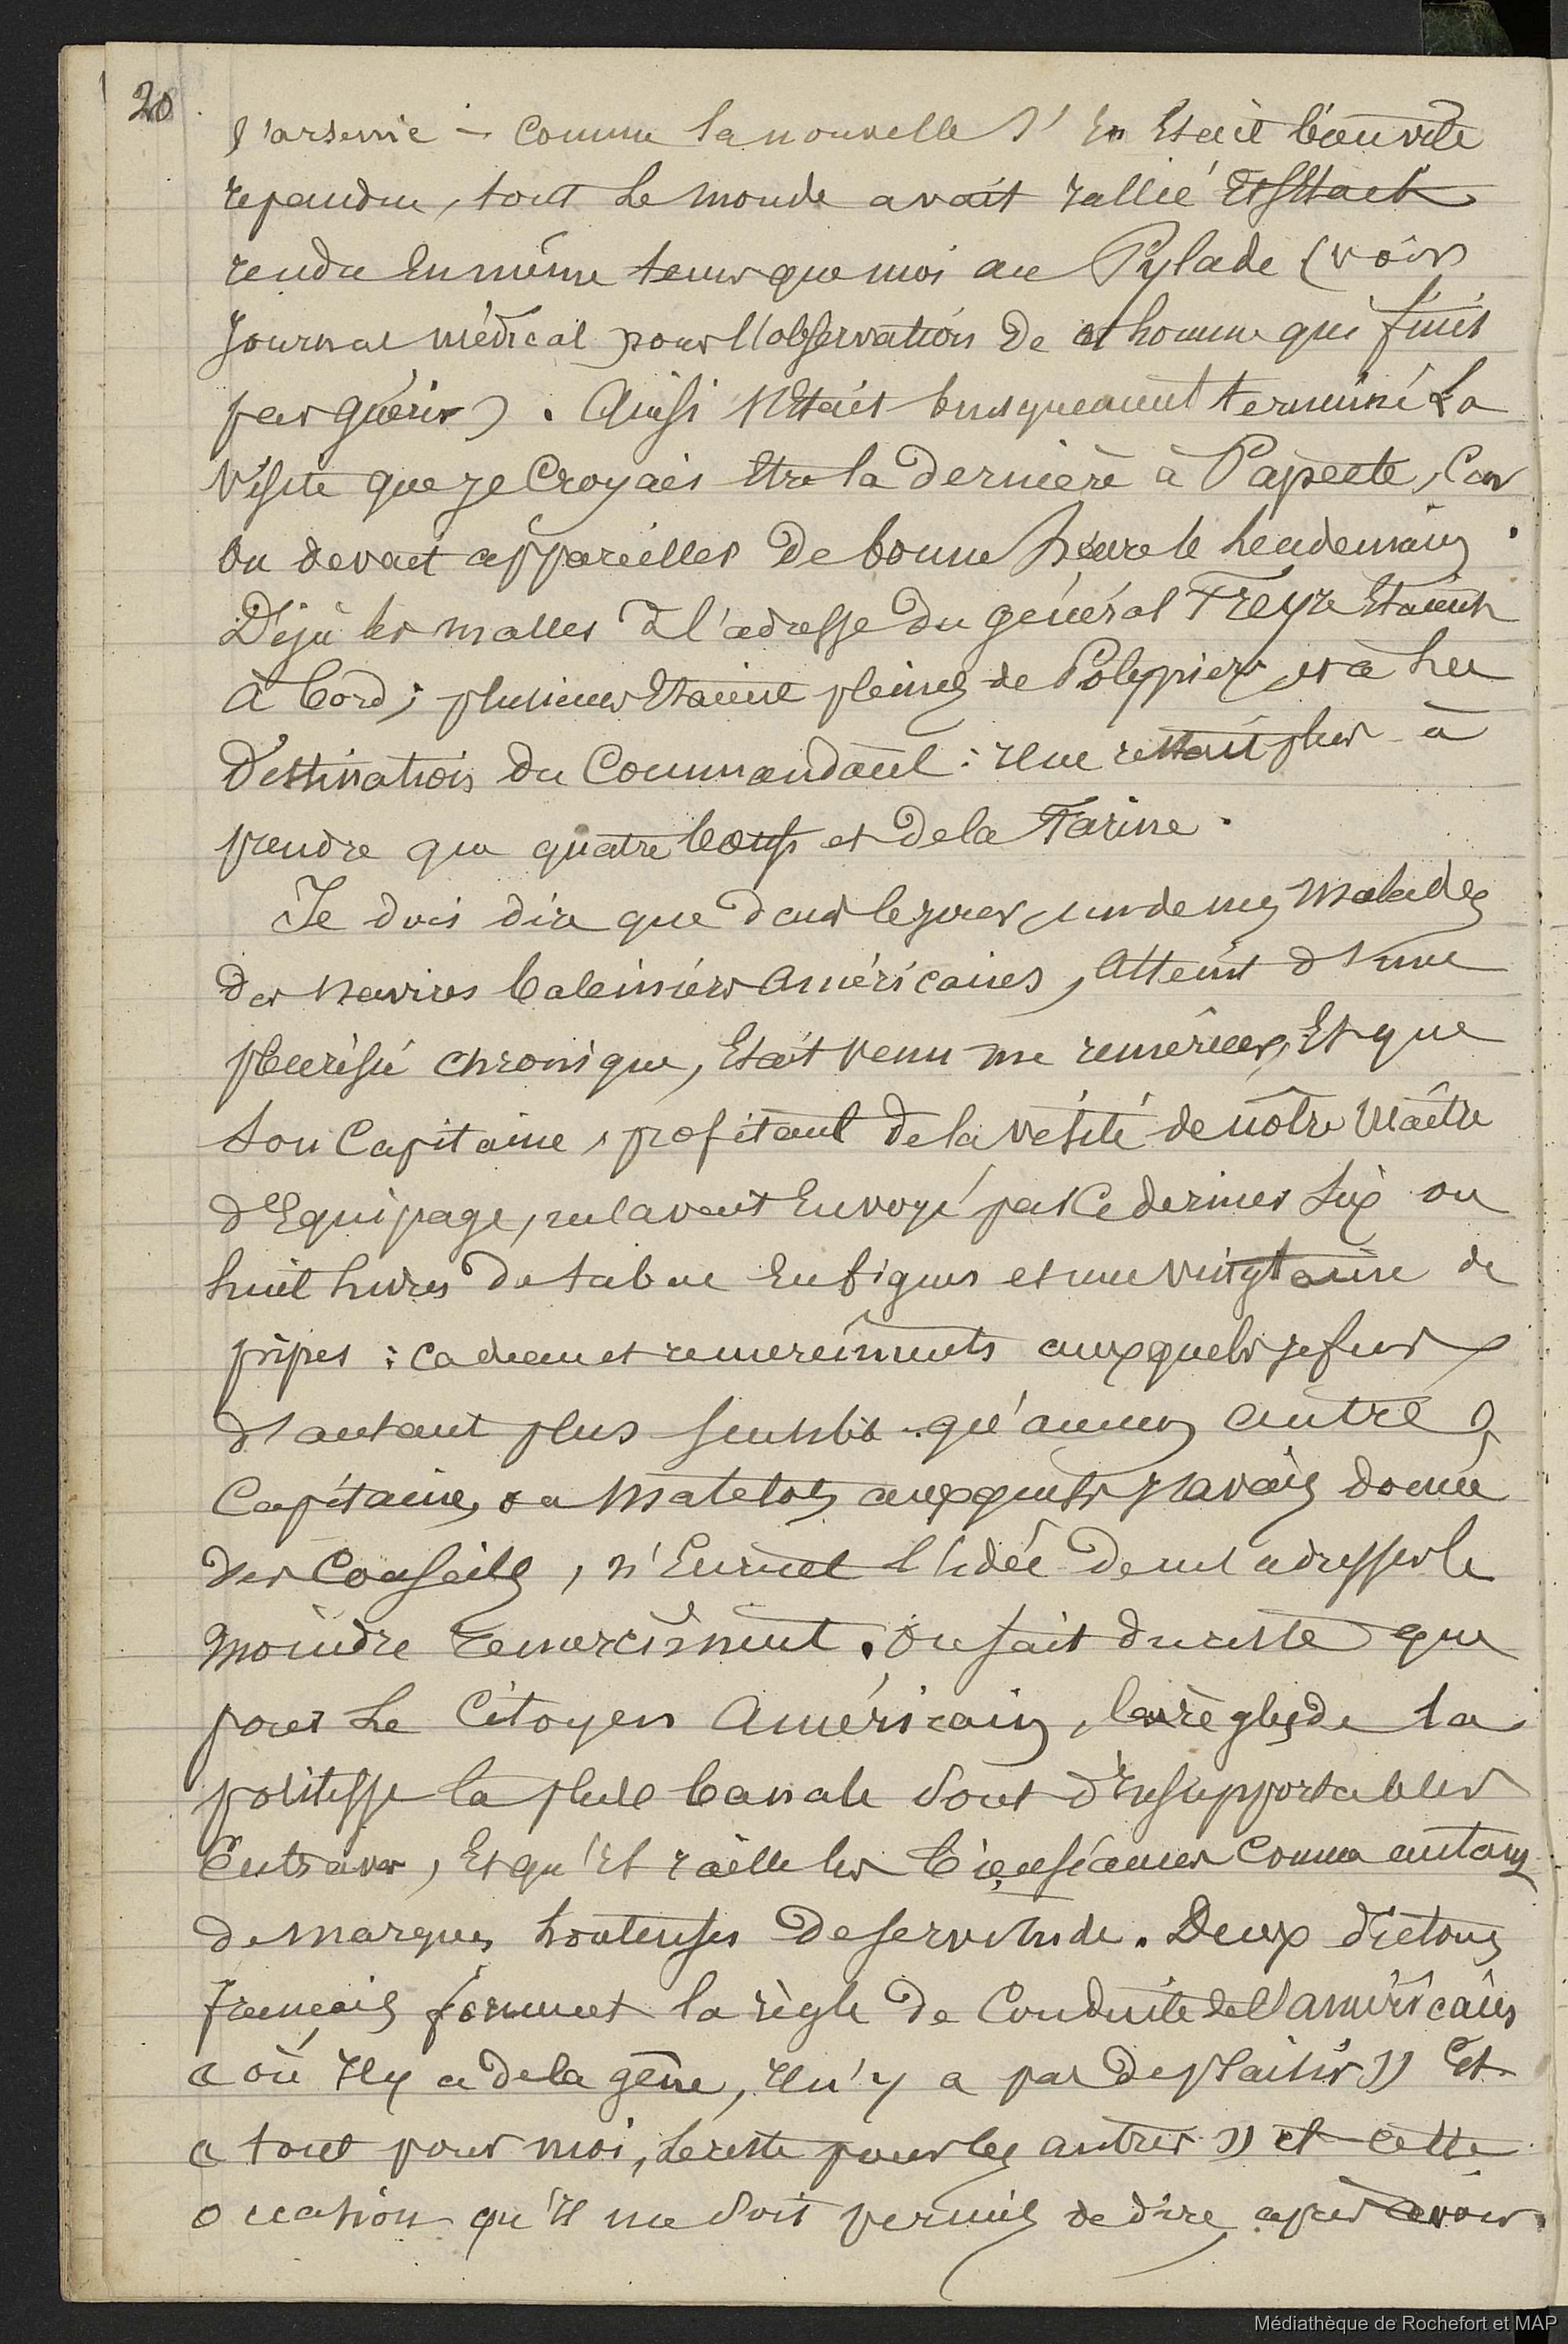 20
l'arsenic - Comme la nouvelle s'en était bien vite
repandue, tout le monde avait rallié et s'était
rendu en même tems que moi au Pylade (voir
journal médical pour l'observation de cet homme qui finit
par guérir). Ainsi s'était brusquement terminé la
visite que je croyais être la dernière à Papeete, Car
on devait appareiller de bonne heure le lendemain.
Déjà les malles à l'adresse du général Freyre étaient
à bord; plusieurs étaient pleines de Polypiers, et à
destination du Commandant: il ne restait plus à
prendre que quatre bœufs et de la Farine.
Je dois dire que dans le jour, un de mes malades
des navires baleiniers Américains, atteint d'une
pleurésie chronique, était venu me remercier, et que
son Capitaine, profitant de la visite de nôtre Maître
d'Equipage, m'avait envoyé par ce dernier six ou
huit livres de tabac en figues et une vingtaine de
pipes: cadeau et remerciments auxquels je fus
d'autant plus sensible qu'aucun autre
Capitaine, ou Matelots auxquels j'avais donné
des Conseils, n'eurent l'idée de m'adresser le
moindre remerciment. On sait du reste que
pour le Citoyen Américain, les règles de la
politesse la plus banale sont d'insupportables
Entraves, et qu'il raille les bienséances comme autant
de marques honteuses de servitude. Deux dictons
français forment la règle de Conduite de l'américain
« où il y a de la gêne, il n'y a pas de plaisir » et
« tout pour moi, le reste pour les autres » et cette
occasion qu'il me soit permis de dire, après avoir
Médiathèque de Rochefort et MAP